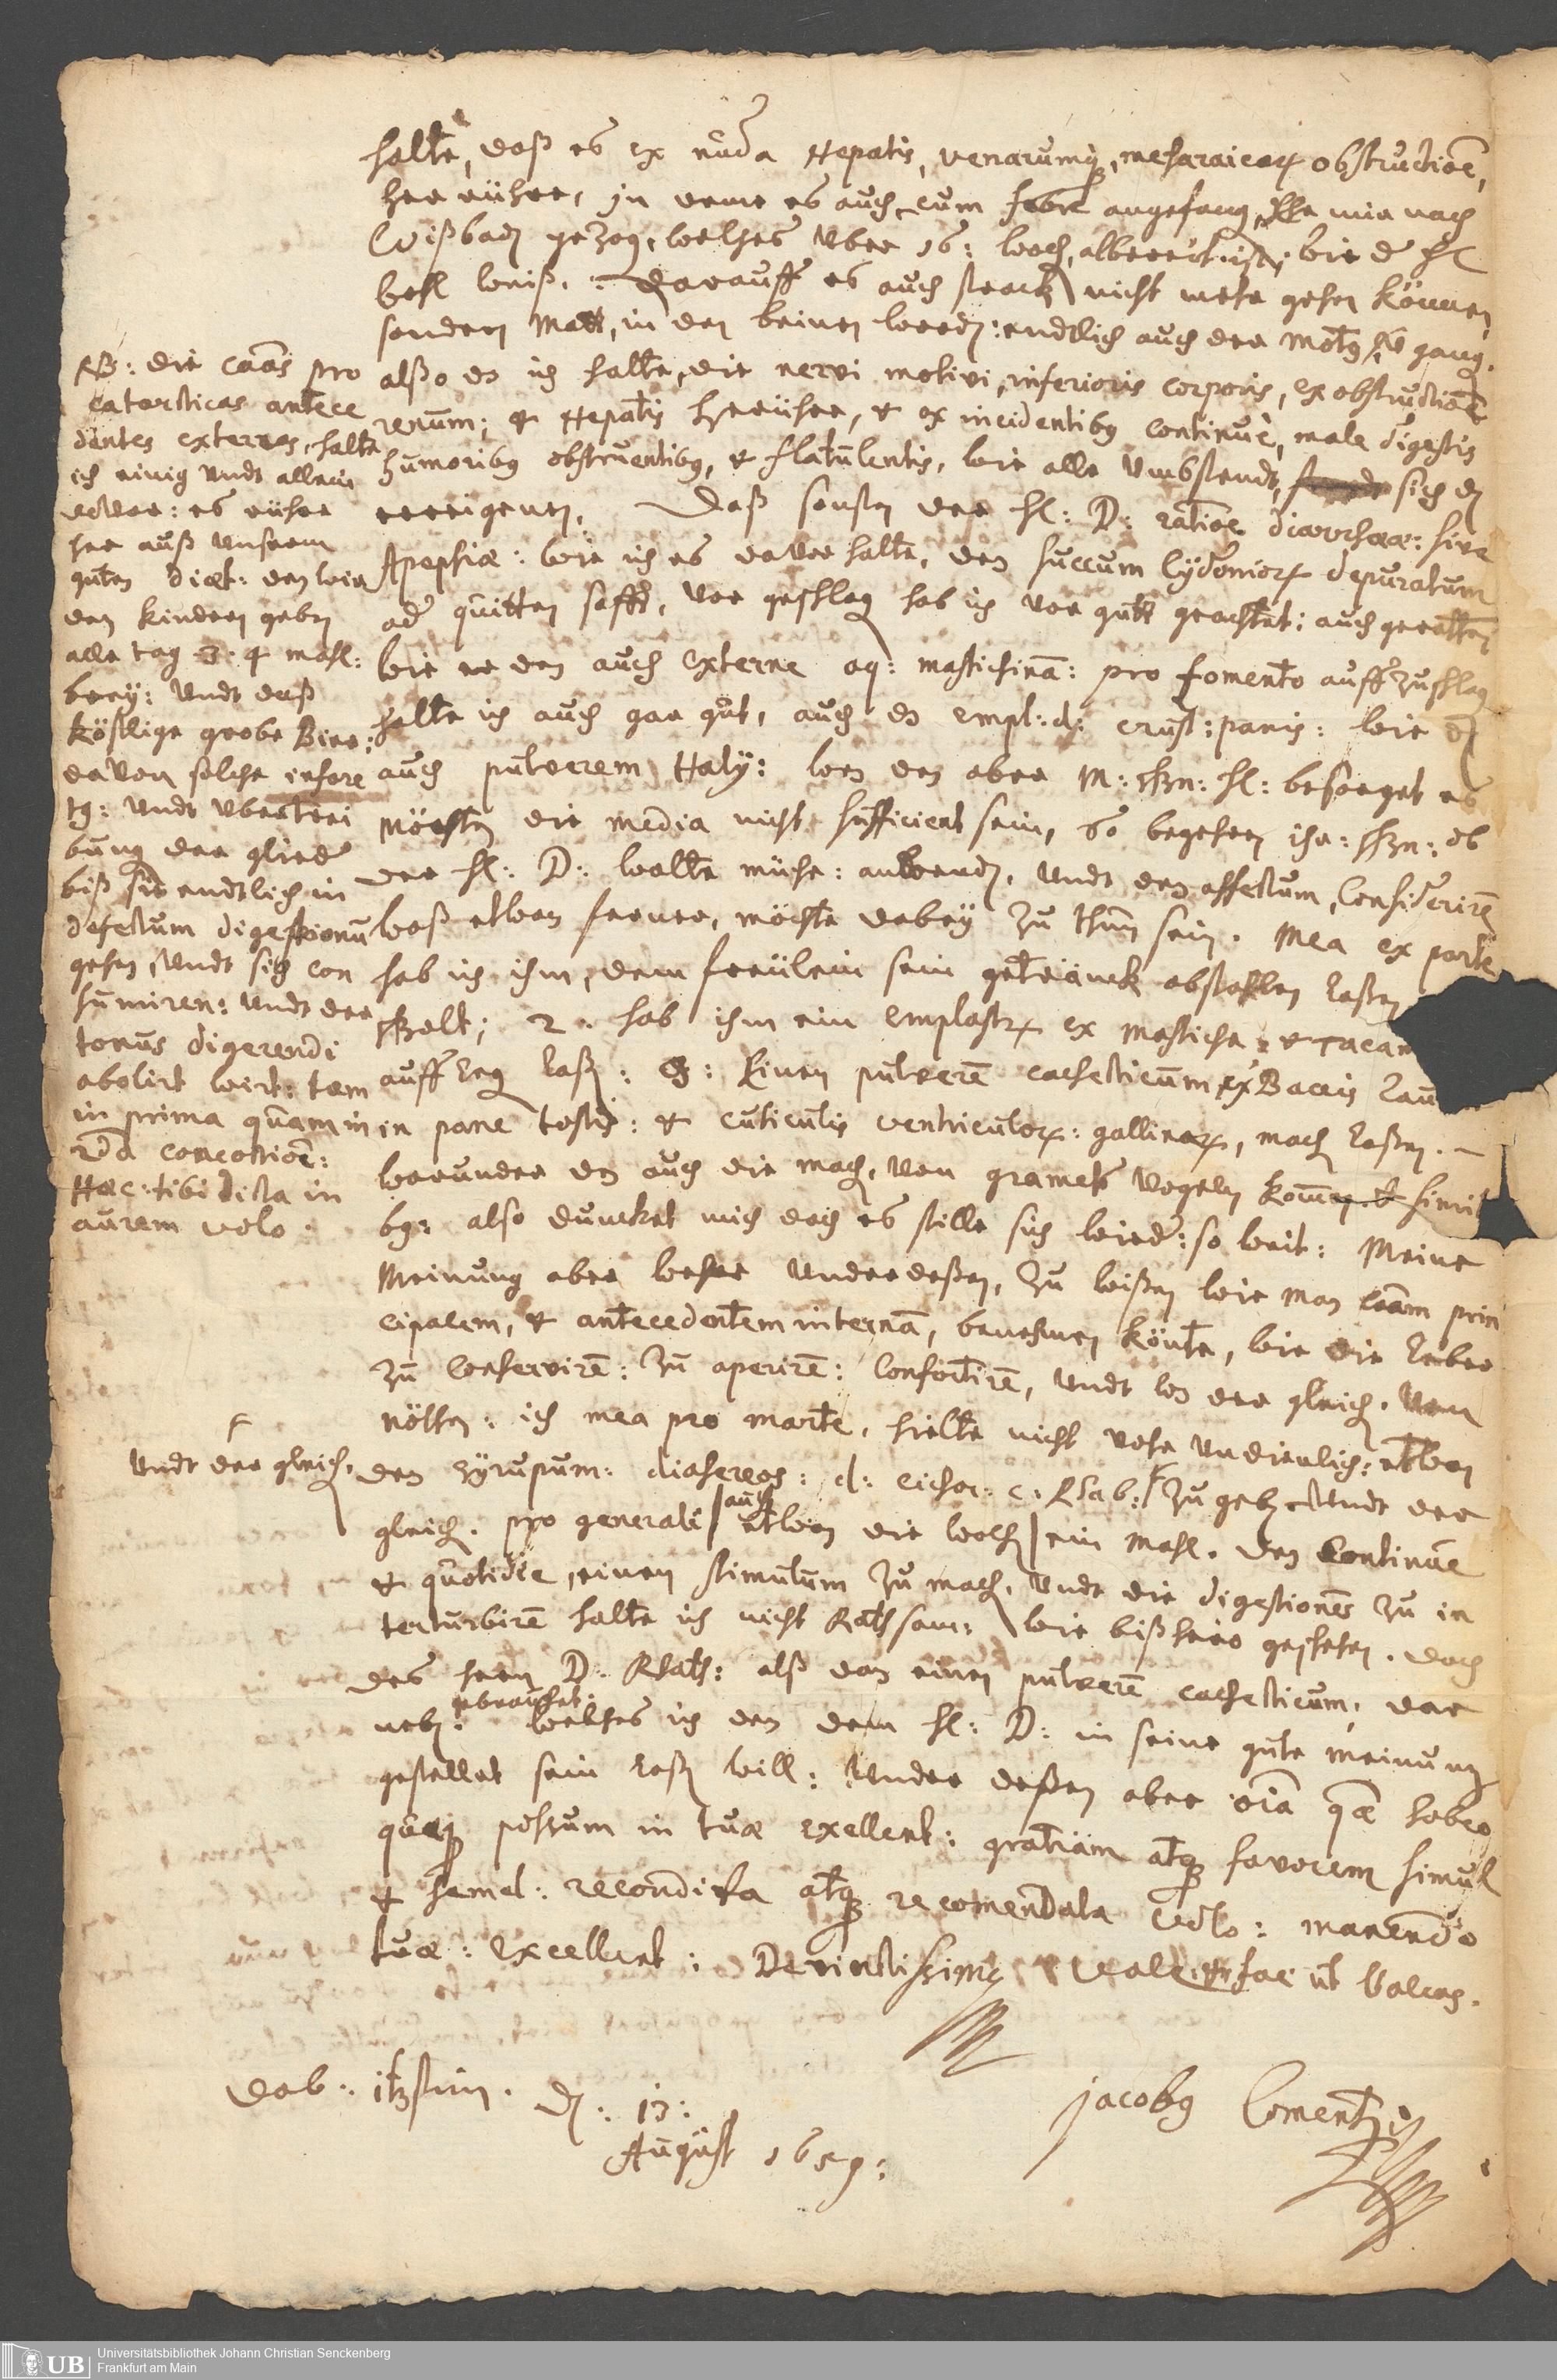 halte, daß es ex nuda Hepatis, venarumq, mesaraicar obstructioe,
her rühre, in deme es auch cum febre angefang, ehe wir nach
Wißbad gezog, welches uber 16: woch, albereit ist, wie d h
well weiß. Darauff es auch starck nicht mehr gehen können,
sondern Matt, in den beinen word: endtlich auch der motg gang.
also dz ich halte, die nervi motivi, inferioris corporis, ex obstructioe
renum; & Hepatis herrühre, & ex incidentibg continue, male digestis
humoribg obstruentibg, & flatulentis, wie alle Umbstendt, sich
ereigenen. Daß sonsten der H: D: ratioe diarrhaeae: sive
Apepsiae: wie ich es davor halte, den succum Cydonior depuratum
od quitten safft, vor geschlag hab ich vor gutt geachtet: auch gerathen
wie er den auch externe aq: mastichina: pro fomento auffzuschlag
halte ich auch gar gut, auch dz empl: d: crust: panis: wie
auch pulverem Haly: wen den aber M: gn: H: besorget es
möchten die media nicht sufficient sein, So begehren ihr: gn: ob
der H: D: wolte mühe: anwend, undt den affectum, Considerire
waß etwan ferner, möchte dabey zu thun sein. Mea ex parte
hab ich ihm, dem freülein sein getränck abstahlen laßen
2. hab ihm ein emplastr ex mastiche & Tacam
auffleg laß: 3: Einen pulvere cachecticum ex Baccis Lau
in pane tostis: & cuticulis ventriculor: gallinar, mach laßen.
worunder dz auch die mach, von gramets vogeln simil
bg: also duncket mich doch es stille sich wied: so weit: Meine
Meinung aber were Underdeßen, zu wißen wie man cam prin
cipalem, & antecedentem interna, benehmen könte, wie die leber
zu conservire: zu aperire: confortire, undt wz der gleich. Von
nötten: ich mea pro marte, hielte nicht vohr undienlich: etwan
den syrupum: diasereos: d: cichor: c: Rhab: zu geb Undt der
gleich. pro generali auch etwan die woch ein mahl. Den continue
& quotidie, einen stimulum zu mach, Undt die digestiones zu in
terturbire halte ich nicht Rathsam: wie bißhero geschehen. doch
des hern D. Rhath: alß dan einen pulvere cachecticum, dar
neb: gebrauchet: welches ich den dem H: D: in seine gute meinung
gestellet sein laß will: Under deßen aber oia quae habeo
quaeq possum in tuae exellent: gratiam atq favorem simul
& semel: recondita atq recomendata volo: manendo
tuae: excellent: Devinctissimg Vale & fac ut Valeas.
NB: die caas pro
catarcticas antece
dentes externas, halte
ich einig undt allein
davor: es rühre
her auß unserem
guten diaet: den wir
den kindern geben
alle tag 3. 4 mahl:
brey: undt daß
köstlige grobe Bier:
davon solche infare
tg: undt ubertrei
bung der glied
biß sie endtlich in
defectum digestionu
gehen undt sich con
sumiren: undt der
tonus digerendi
abolirt wirt: tam
in prima quam in
2da concoctioe:
Haec tibi dicta in
aurem volo.
undt der gleich.
Dab: itzstein. D: 13:
August 1659:
Jacobg Comentzig
Universitätsbibliothek Johann Christian Senckenberg
Frankfurt am Main
UB